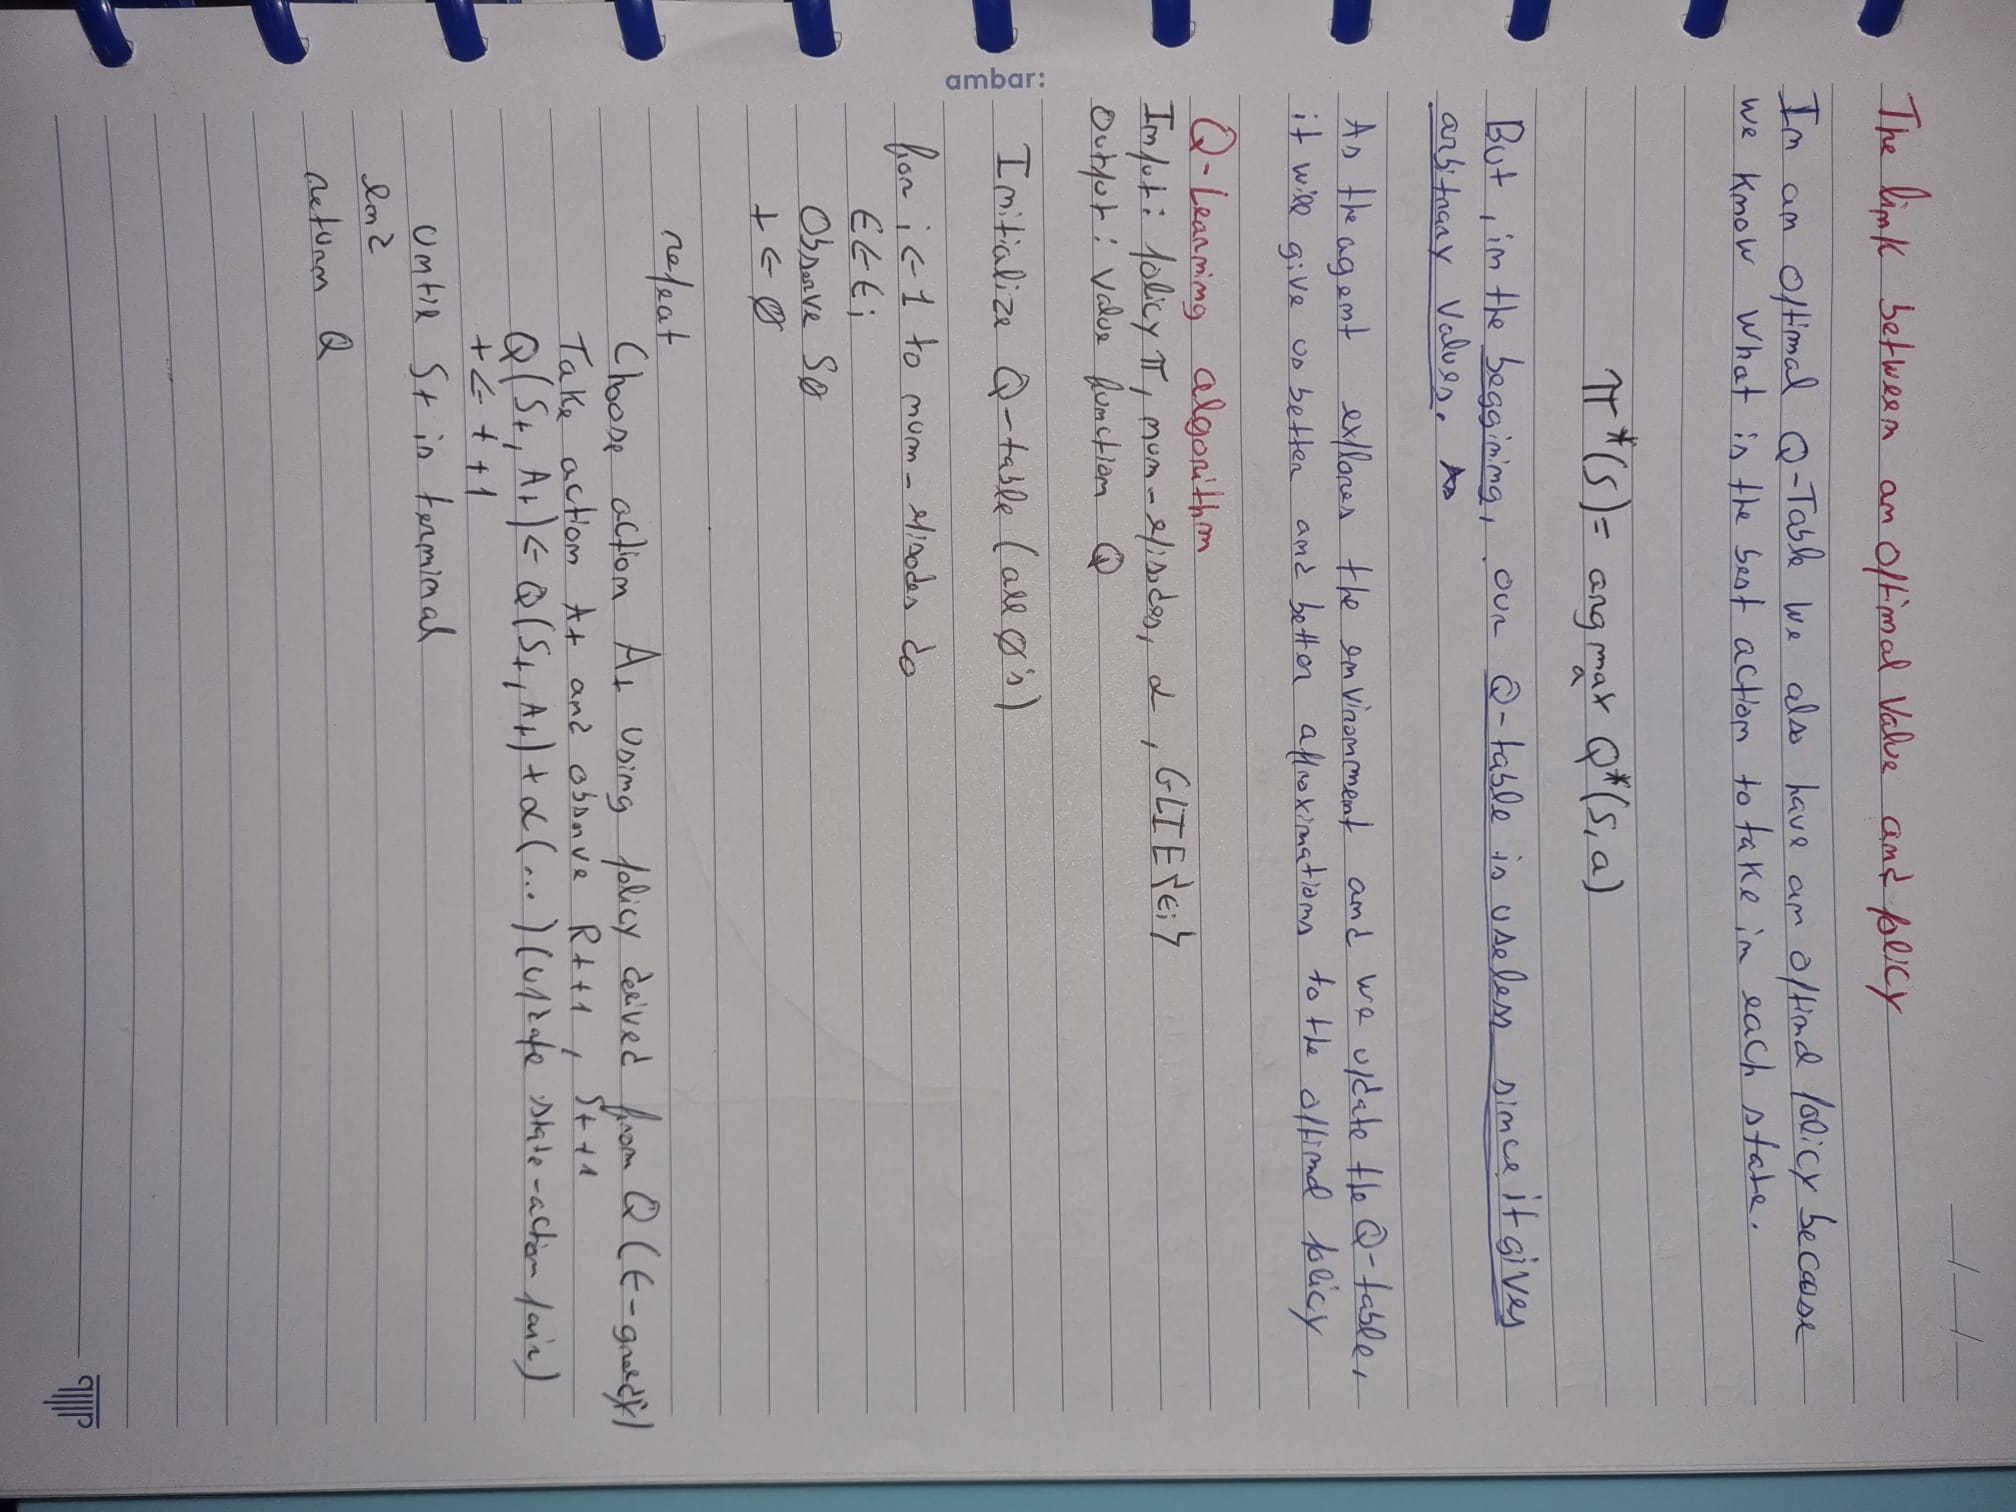 __/__/__
The link between an optimal Value and policy
In an optimal Q-Table we also have an optimal policy because
we know what is the best action to take in each state.
π*(s) = arg max Q*(s, a)
a
But, in the beggining, our Q-table is useless since it gives
arbitrary values. As
As the agent explores the environment and we update the Q-table,
it will give us better and better approximations to the optimal policy
Q-Learning algorithm
Input: policy π, num-episodes, α, GLIE {εi}
Output: Value function Q
Initialize Q-table (all 0's)
for i ← 1 to num-episodes do
ε ← εi
Observe S0
t ← 0
repeat
Choose action At using policy derived from Q (ε-greedy)
Take action At and observe Rt+1, St+1
Q(St, At) ← Q(St, At) + α(...) (update state-action pair)
t ← t+1
until St is terminal
end
return Q
ambar: